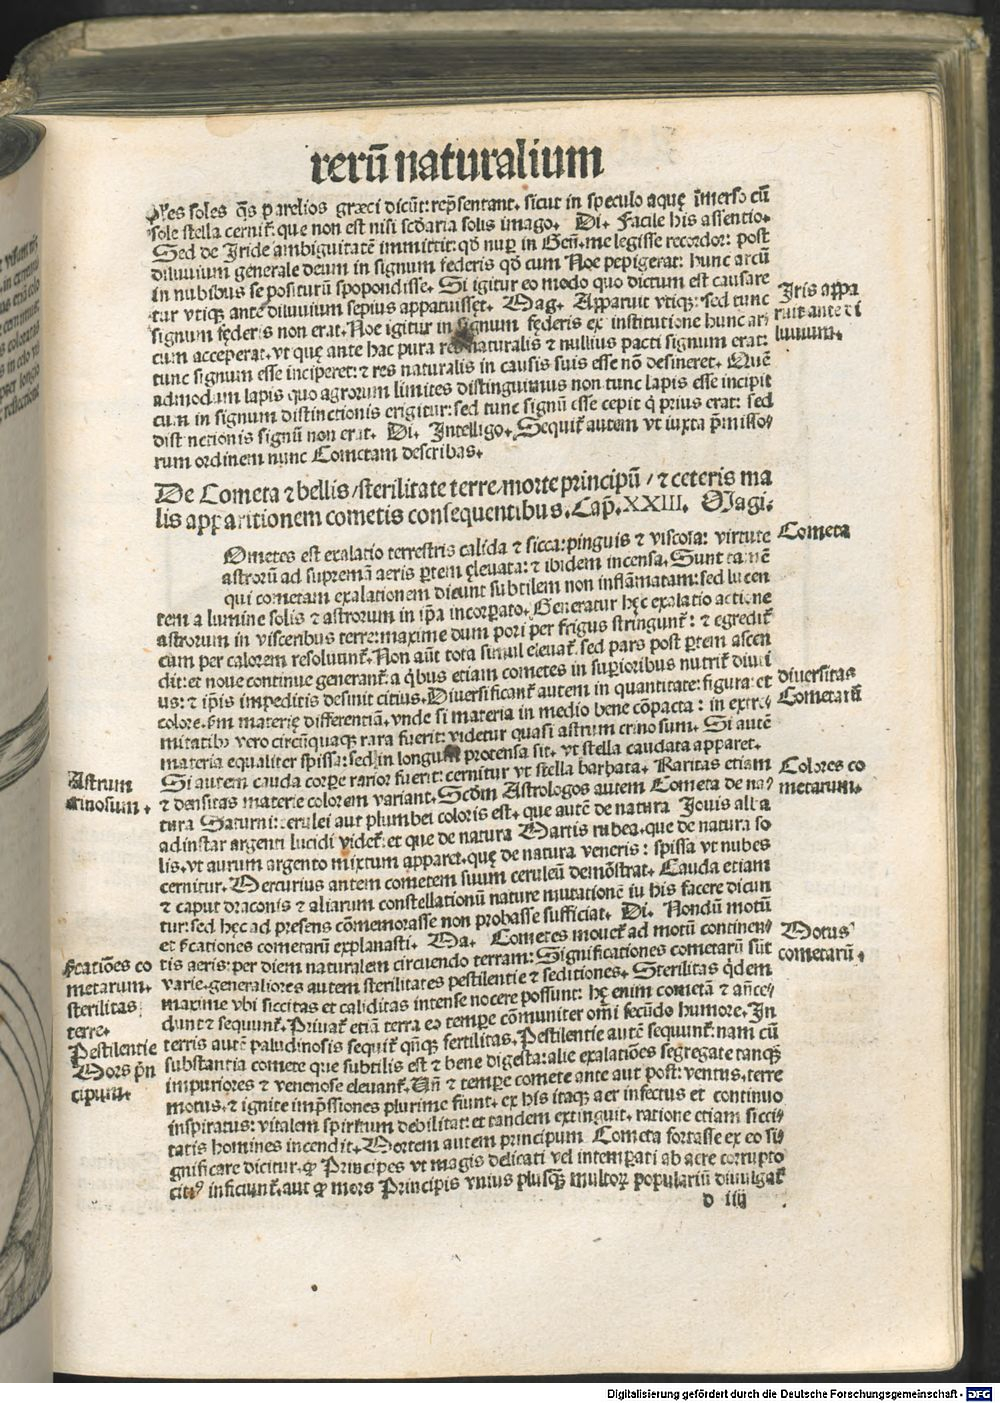 rerū naturalium
ples soles q̄s parelios græci dicūt: repn̄sentant. sicut in speculo aquę īmerso cū
sole stella cernit̄. que non est nisi scd̄aria solis imago. Di. Facile his assentio.
Sed de Iride ambiguitatē immittit: qd̄ nup̄ in Gen̄. me legisse recordor: post
diluuium generale deum in signum federis qd̄ cum Noe pepigerat: hunc arcū
in nubibus se positurū spopondisse. Si igitur eo modo quo dictum est causare
tur vtiq̄ ante diluuium sepius apparuisset. Mag. Apparuit vtiq̄: sed tunc
signum fęderis non erat. Noe igitur in signum fęderis ex institutione hunc ar⸗
cum acceperat. vt quę ante hac pura res naturalis & nullius pacti signum erat:
tunc signum esse inciperet: & res naturalis in causis suis esse nō desineret. Quē
admodum lapis quo agrorum limites distinguimus non tunc lapis esse incipit
cum in signum distinctionis erigitur: sed tunc signū esse cepit q̄ prius erat: sed
distinctionis signū non erat. Di. Intelligo. Sequit̄ autem vt iuxta p̄misso⸗
rum ordinem nunc Cometam describas.
Iris appa
ruit ante di
luuium.
De Cometa & bellis/sterilitate terre/morte principū/& ceteris ma
lis apparitionem cometis consequentibus. Cap̄. XXIII. Magi.
Cometa
Ometes est exalatio terrestris calida & sicca: pinguis & viscosa: virtute
astrorū ad supremā aeris p̄tem ęleuata: & ibidem incensa. Sunt tamē
qui cometam exalationem dicunt subtilem non inflāmatam: sed lucen
tem a lumine solis & astrorum in ip̄a incorp̄ato. Generatur hęc exalatio actione
astrorum in visceribus terre: maxime dum pori per frigus stringunt̄: & egredit̄
cum per calorem resoluunt̄. Non aūt tota simul eleuat̄. sed pars post p̄tem ascen
dit: et noue continue generant̄: a q̄bus etiam cometes in sup̄ioribus nutrit̄ diuti
us: & ip̄is impeditis desinit citius. Diuersificant̄ autem in quantitate: figura: et
colore. s̄m materię differentiā. vnde si materia in medio bene cōpacta: in extre⸗
mitatib⁹ vero circūquaq̄ rara fuerit: videtur quasi astrum crinosum. Si autē
materia equaliter spissa: sed in longum protensa sit. vt stella caudata apparet.
Si autem cauda corp̄e rarior fuerit: cernitur vt stella barbata. Raritas etiam
& densitas materie colorem variant. Scd̄m Astrologos autem Cometa de na⸗
tura Saturni: cerulei aut plumbei coloris est. que autē de natura Iouis alba
ad instar argenti lucidi videt̄: et que de natura Martis rubea. que de natura so
lis. vt aurum argento mixtum apparet. quę de natura veneris: spissa vt nubes
cernitur. Mercurius autem cometem suum ceruleū demōstrat. Cauda etiam
& caput draconis & aliarum constellationū nature mutationē in his facere dicun
tur: sed hęc ad presens cōmemorasse non probasse sufficiat. Di. Nondū motū
et s̄ficationes cometarū explanasti. Ma. Cometes mouet̄ ad motū continen⸗
tis aeris: per diem naturalem circuendo terram: Significationes cometarū sūt
varie. generaliores autem sterilitates pestilentie & seditiones. Sterilitas q̄dem
maxime vbi siccitas et caliditas intense nocere possunt: hę enim cometā & an̄ce⸗
dunt & sequunt̄. Priuat̄ etiā terra eo temp̄e cōmuniter om̄i fecūdo humore. In
terris autē paludinosis sequit̄ qn̄q̄ fertilitas. Pestilentie autē sequunt̄: nam cū
substantia comete que subtilis est & bene digesta: alie exalatiōes segregate tanq̄
impuriores & venenose eleuant̄. Un̄ & temp̄e comete ante aut post: ventus. terre
motus. & ignite imp̄ssiones plurime fiunt. ex his itaq̄ aer infectus et continuo
inspiratus: vitalem spiritum debilitat: et tandem extinguit. ratione etiam sicci⸗
tatis homines incendit. Mortem autem principum Cometa fortasse ex eo si⸗
gnificare dicitur. q̄ Principes vt magis delicati vel intemp̄ati ab aere corrupto
citi⁹ inficiunt̄. aut q̄ mors Principis vnius plusq̄ multoꝝ populariū diuulgat̄
diuersitas
Cometarū
Astrum
crinosum.
Colores co
metarum.
Motus
cometarū.
s̄ficatiōes co
metarum.
sterilitas
terre.
Pestilentie
Mors prin
cipum.
d iiij
Digitalisierung gefördert durch die Deutsche Forschungsgemeinschaft - DFG